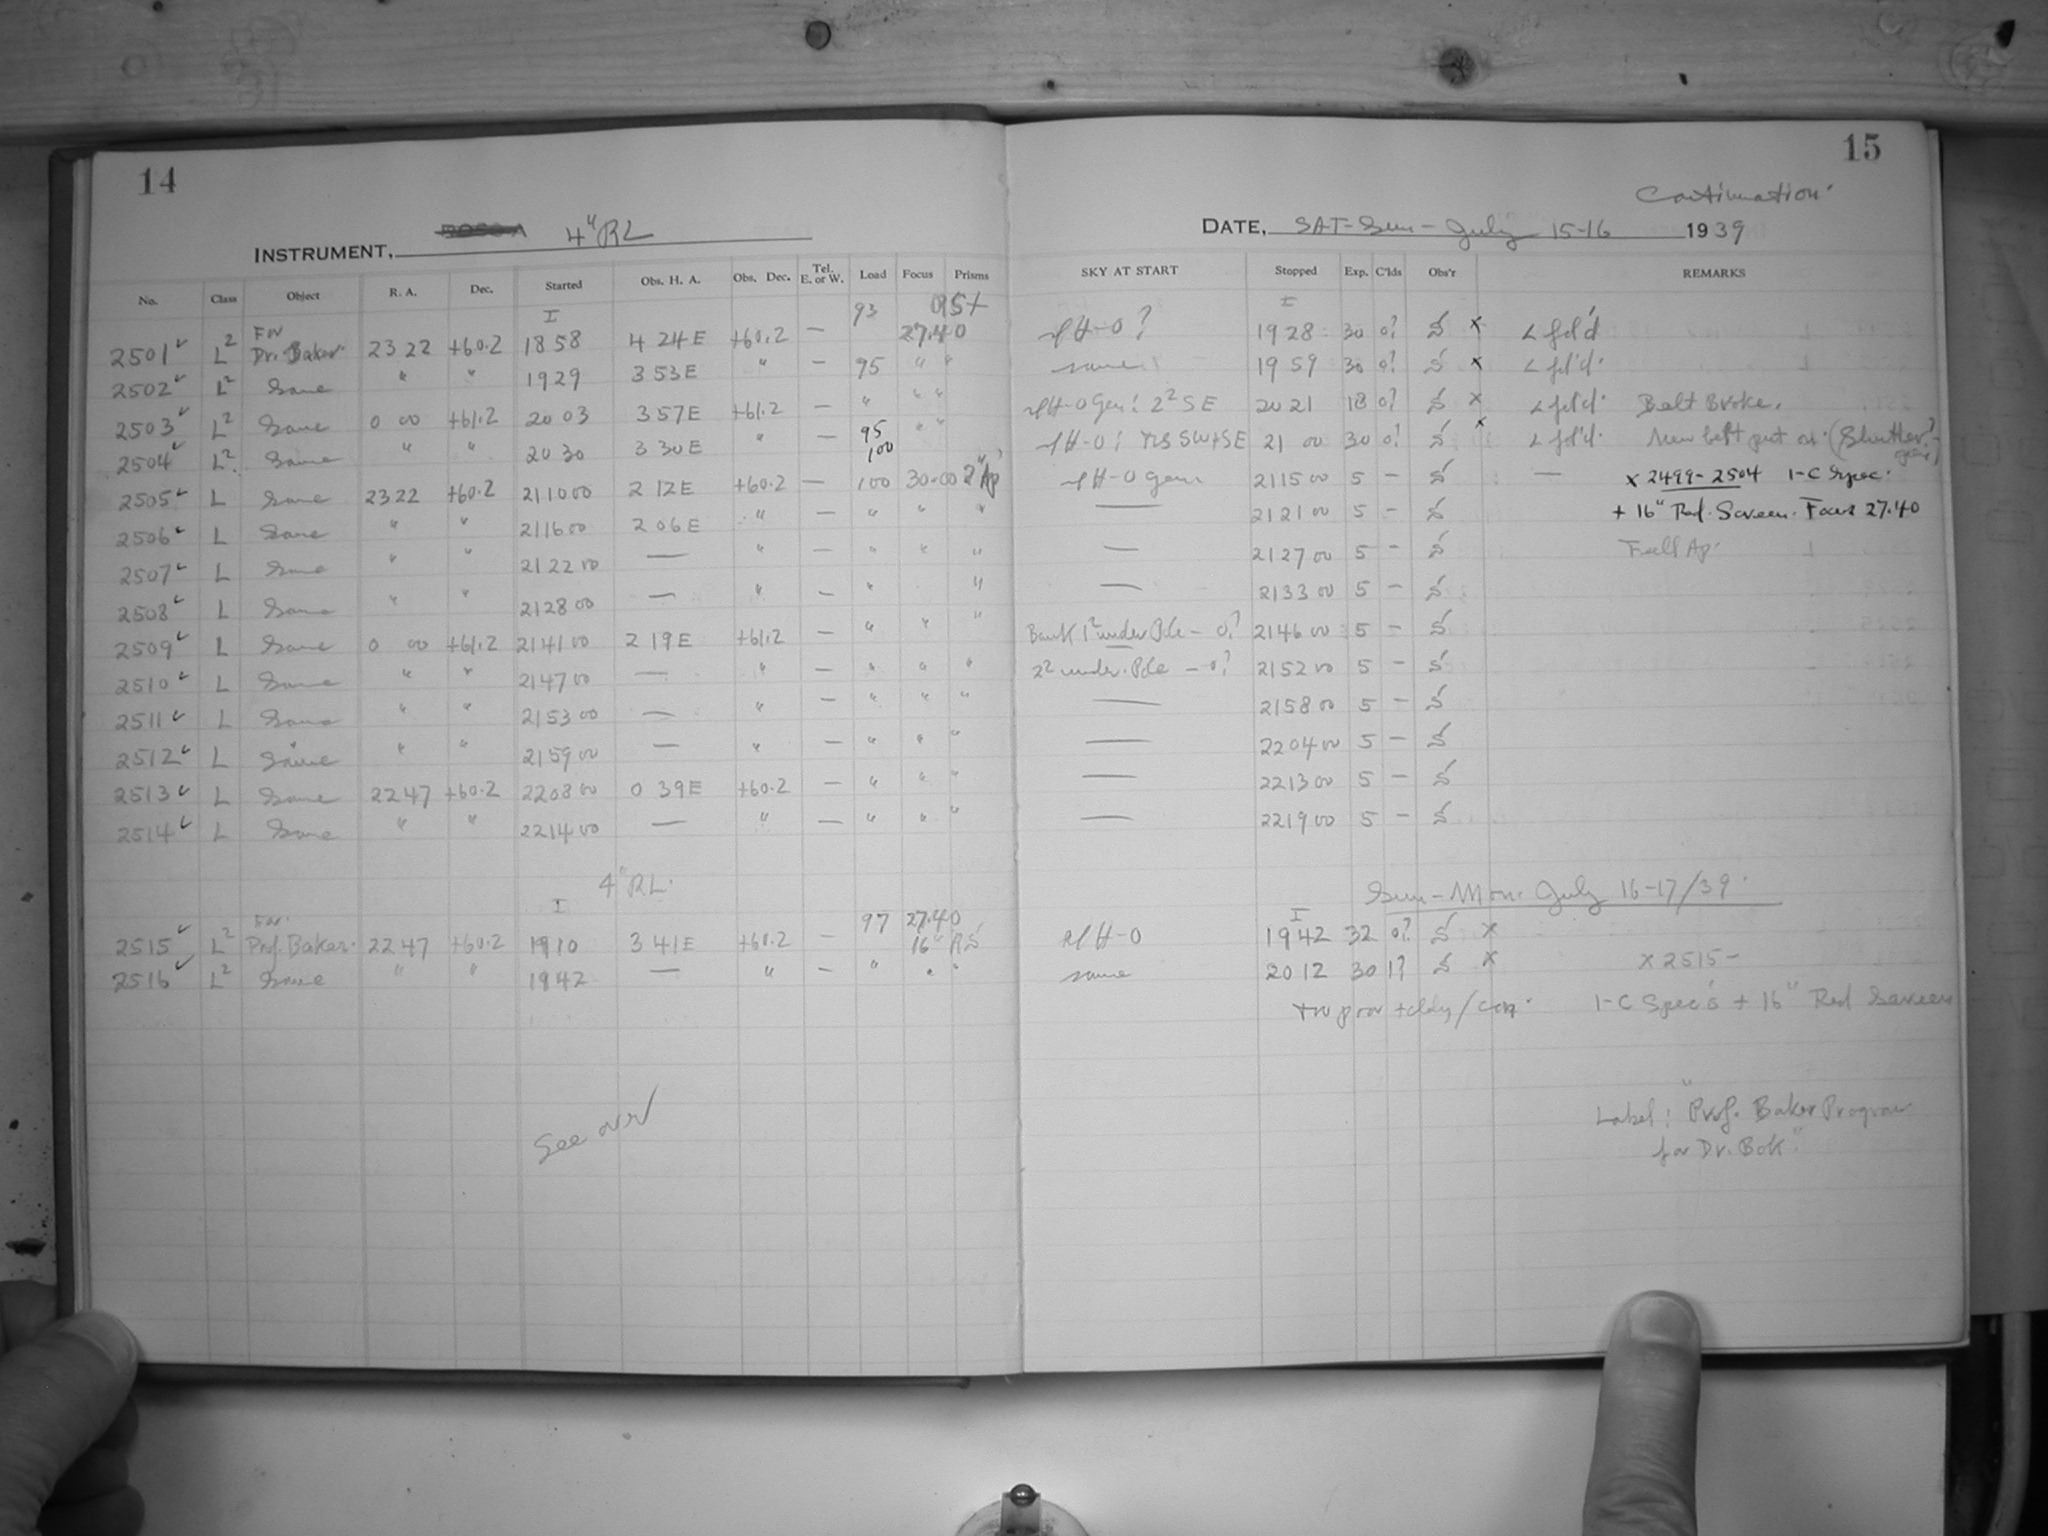 14
INSTRUMENT, 4" RL
No. Class Object R. A. Dec. Started Obs. H. A. Obs. Dec. Tel. E. or W. Load Focus Prisms
I 93
2501 ✓ L² For Dr. Baker 23 22 +60.2 18 58 4 24 E +60.2 — 27.40
2502 ✓ L² Same " " 19 29 3 53 E " — 95 " "
2503 ✓ L² Same 0 00 +61.2 20 03 3 57 E +61.2 — " " "
2504 ✓ L² Same " " 20 30 3 30 E " — 95 100 " "
2505 ✓ L Same 23 22 +60.2 21 10 00 2 12 E +60.2 — 100 30.00 2" Ap
2506 ✓ L Same " " 21 16 00 2 06 E " — " " "
2507 ✓ L Same " " 21 22 00 — " — " " "
2508 ✓ L Same " " 21 28 00 — " — " "
2509 ✓ L Same 0 00 +61.2 21 41 00 2 19 E +61.2 — " " "
2510 ✓ L Same " " 21 47 00 — " — " " "
2511 ✓ L Same " " 21 53 00 — " — " " "
2512 ✓ L Same " " 21 59 00 — " — " " "
2513 ✓ L Same 22 47 +60.2 22 08 00 0 39 E +60.2 — " " "
2514 ✓ L Same " " 22 14 00 — " — " " "
4" RL.
I
2515 ✓ L² For Prof. Baker 22 47 +60.2 19 10 3 41 E +60.2 — 97 27.40 16" RS
2516 ✓ L² Same " " 19 42 — " — " " "
See over
15
Continuation
DATE, SAT-Sun- July 15-16 1939
SKY AT START Stopped Exp. C'lds Obs'r REMARKS
I
H-0? 19 28 30 0? S x L fd'd
same 19 59 30 0? S x L fd'd.
H-0 Gen: 2² SE 20 21 18 0? S x L fd'd. Belt Broke.
H-0: SW+SE 21 00 30 0? S x L fd'd. New belt put on (Shutter? gone)
H-0 gen 21 15 00 5 - S — x 2499-2504 1-C Spec.
— 21 21 00 5 - S + 16" Red Screen. Focus 27.40
— 21 27 00 5 - S Full Ap.
— 21 33 00 5 - S
Bank 1² under Pole - 0? 21 46 00 5 - S
2² under Pole - 0? 21 52 00 5 - S
— 21 58 00 5 - S
— 22 04 00 5 - S
— 22 13 00 5 - S
— 22 19 00 5 - S
Sun-Mon. July 16-17/39.
I
H-0 19 42 32 0? S x
same 20 12 30 1? S x x 2515-
1-C Spec's + 16" Red Screen
Label: "Prof. Baker Program
for Dr. Bok"